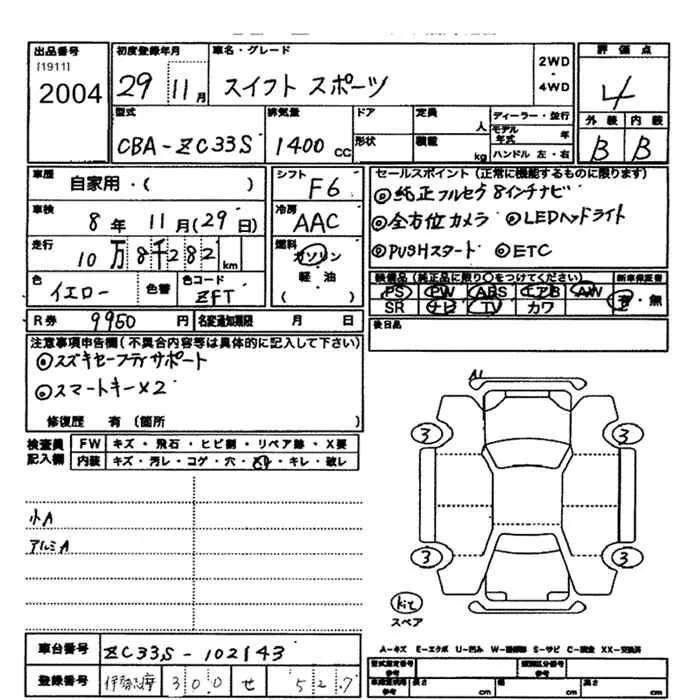 出品番号
[1911]
2004
初度登録年月
29 11月
車名・グレード
スイフト スポーツ
2WD
・
4WD
評価点
4
型式
CBA-ZC33S
排気量
1400 CC
ドア
形状
定員
人
積載
kg
ディーラー・並行
モデル年式 年
ハンドル 左・右
外装 内装
B B
車歴
自家用・( )
シフト
F6
セールスポイント (正常に機能するものに限ります)
◎純正フルセグ8インチナビ
◎全方位カメラ ◎LEDヘッドライト
◎PUSHスタート ◎ETC
車検
8年 11月(29日)
冷房
AAC
走行
10万8千282km
燃料
ガソリン
軽・油
( )
色
イエロー
色替
色コード
ZFT
装備品 (純正品に限り○をつけてください) 新車保証書
PS PW ABS エアB AW
SR ナビ TV カワ
有・無
R券 9950円
名変通知期限 月 日
後日品
注意事項申告欄 (不具合内容等は具体的に記入して下さい)
◎スズキセーフティサポート
◎スマートキー×2
修復歴 有 (箇所 )
検査員記入欄
FW キズ・飛石・ヒビ割・リペア跡・X要
内装 キズ・汚レ・コゲ・穴・スレ・キレ・破レ
小A
アルミA
A1
3
3
3
3
kit
スペア
車台番号
ZC33S-102143
登録番号
伊勢志摩 300 せ 527
A-キズ E-エクボ U-凹み S-サビ C-腐食 XX-交換済
型式指定番号 参考
類別区分番号 参考
長さ cm
幅 cm
高さ cm